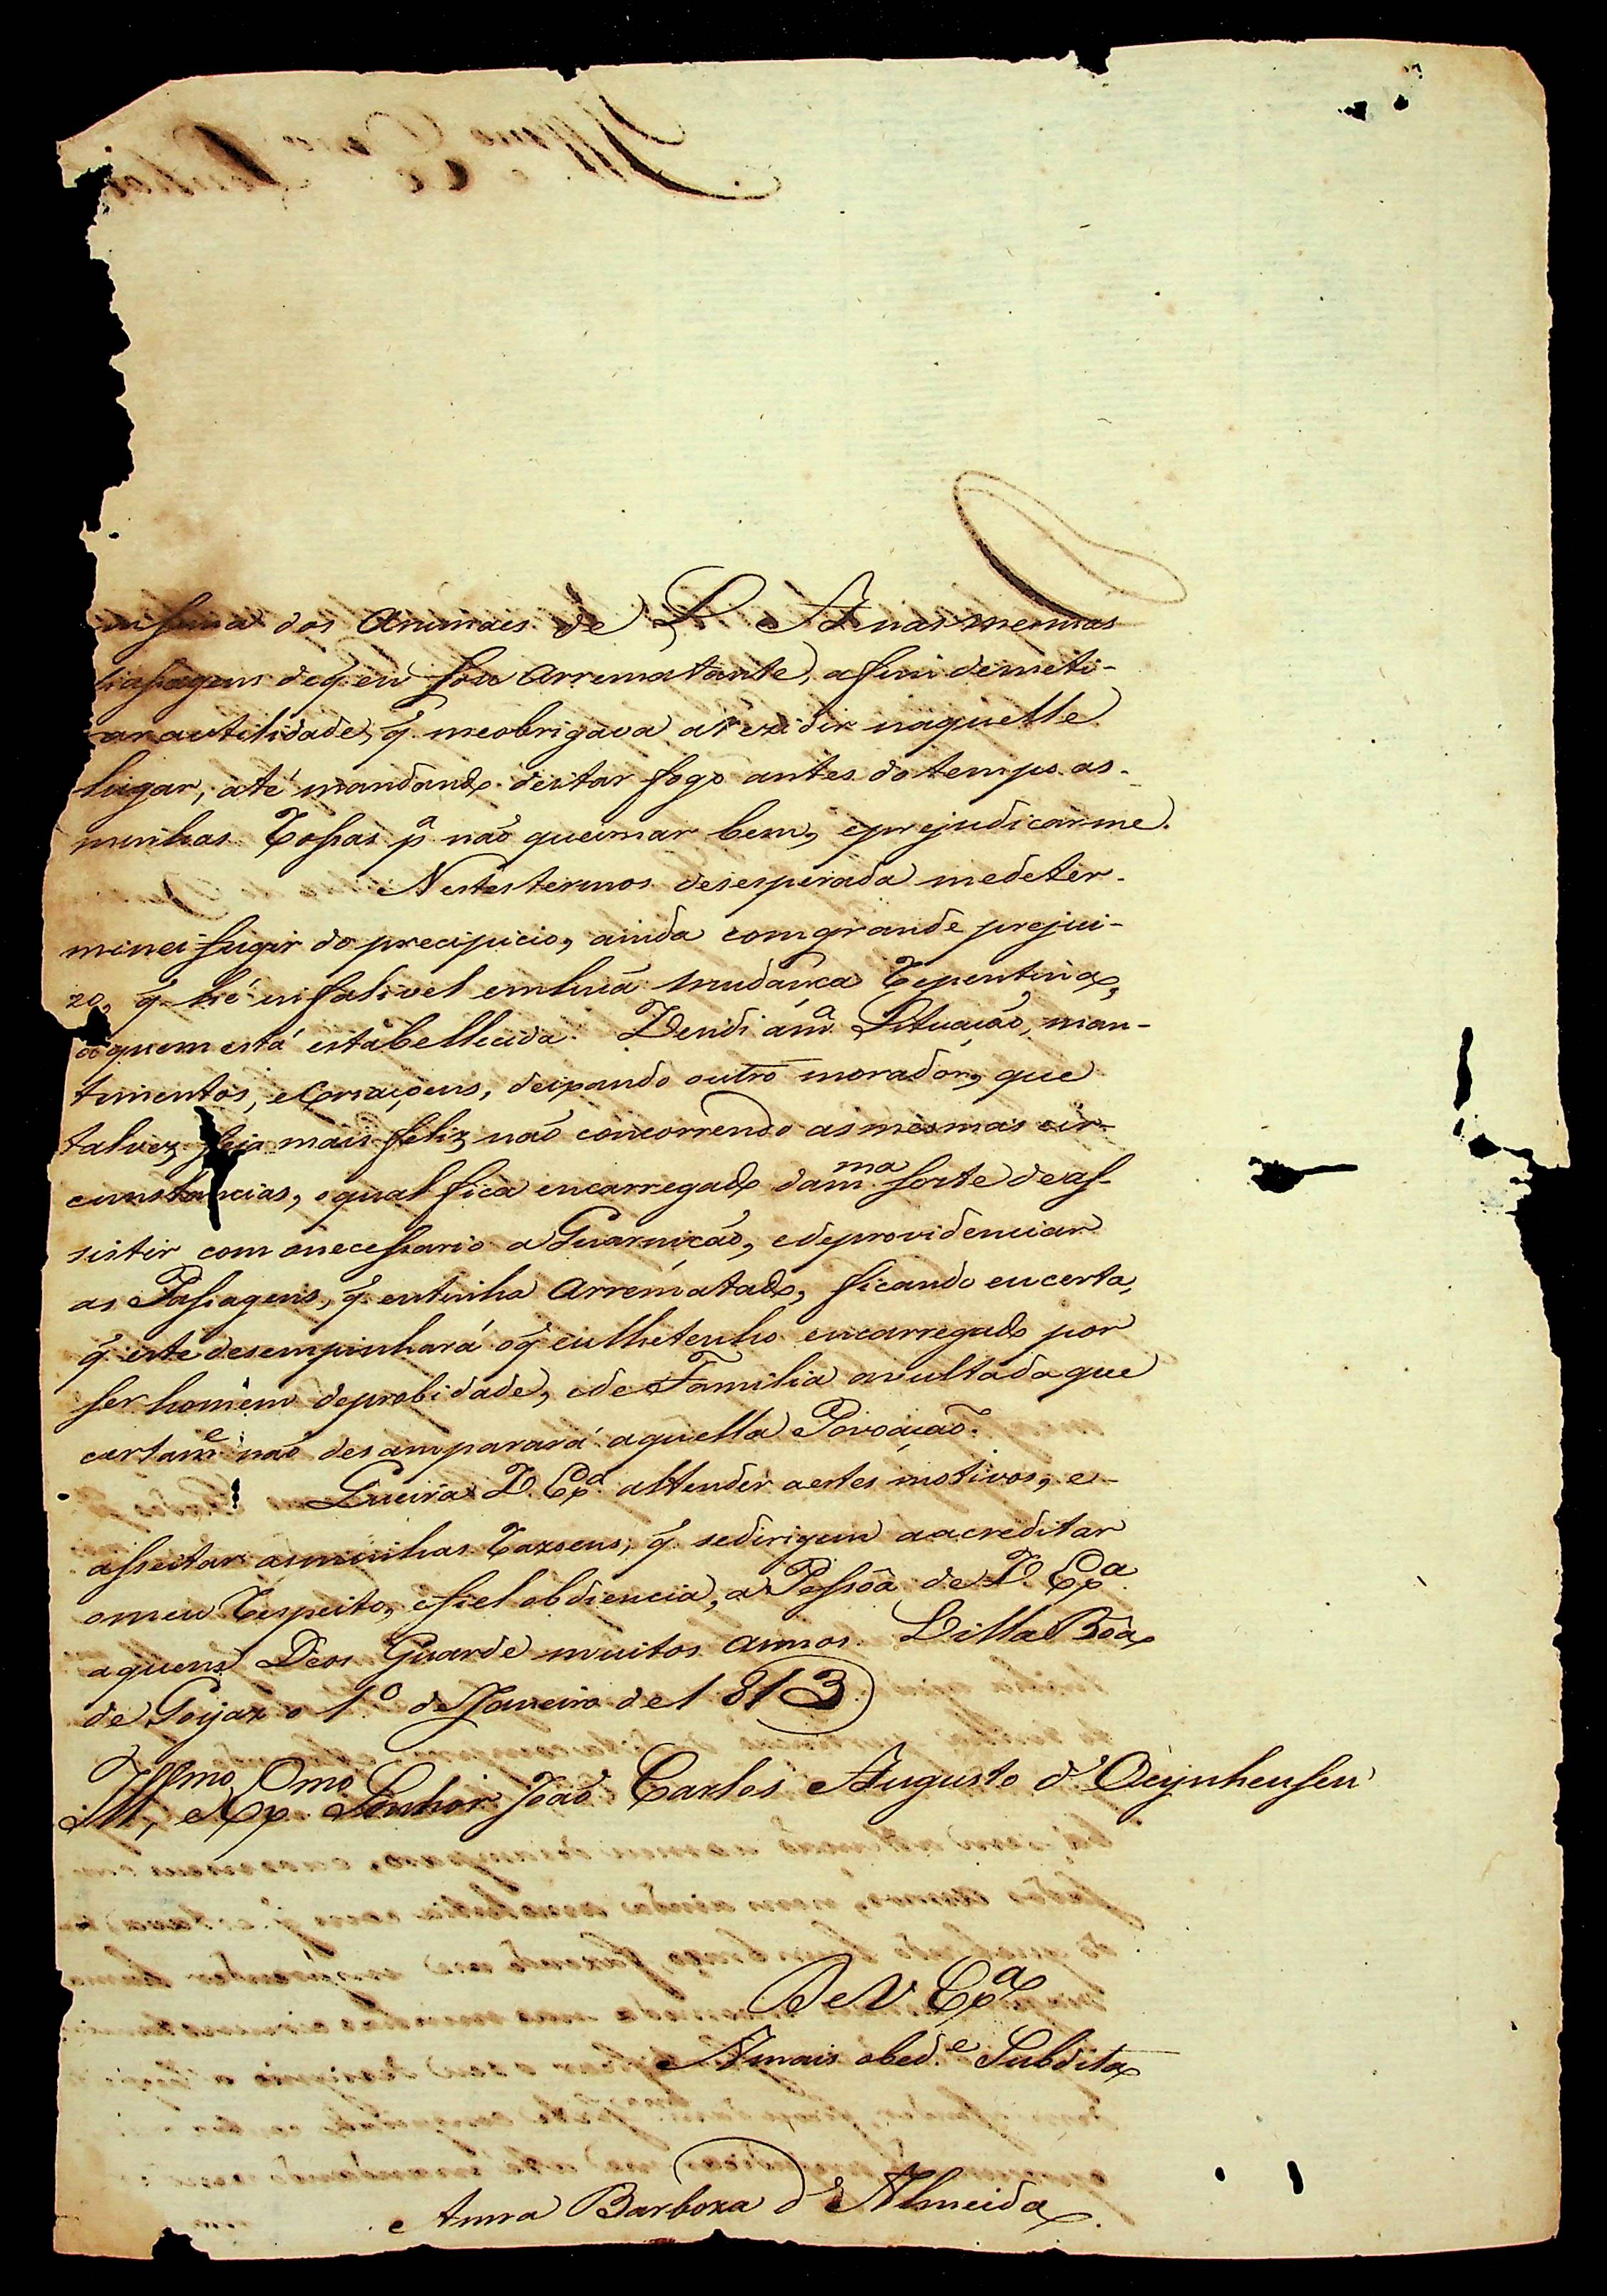 dos Animaes de S. A. nas mesmas
Passagens deq. eu sou Arrematante, afim demeti-
rar autilidade, q. meobrigava arezidir naquelle
lugar, até mandando deitar fogo antes do tempo as-
minhas Rossas pª não queimar bem, eprejudicarme.
Nestes termos desesperada medeter-
minei fugir do precipicio, ainda comgrande prejui-
zo, q. hé infalivel emhuã mudança repentina,
a quem está estabellecida. Vendi a mª Situação, man-
timentos, eCriaçoens, deixando outro morador, que
talvez seja mais feliz, não concorrendo asmesmas cir-
cunstancias, oqual fica encarregado damᵐᵃ sorte deas-
sistir com onecessario aGuarnição, edeprovidenciar
as Passagens, q. eutinha Arrematado, ficando eucerta,
q. este desempinhará oq. eulhetenho encarregado por
ser homem deprobidade, ede Familia avultada que
certamᵉ não desamparará aquella Povoação.
Queira V. Exª attender aestes motivos, e-
asseitar asminhas razoens, q. sedirigem aacreditar
omeu respeito, efiel obdiencia, a Pessôa de V. Exª
aquem Deos Guarde muitos annos. Villa Bôa
de Goyaz o 1º de Janeiro de 1813
Illᵐᵒ, e Exᵐᵒ Senhor João Carlos Augusto d'Oeynhensen
De V Exª
A mais obedᵉ Subdita
Anna Barboza d'Almeida